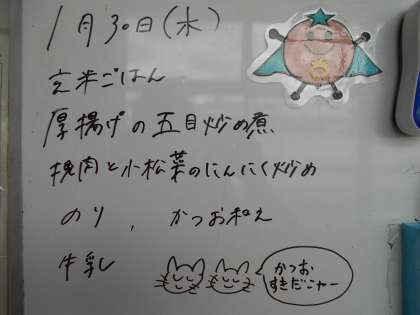 1月30日(水)
玄米ごはん
厚揚げの五目炒め煮
挽肉と小松菜のにんにく炒め
のり、かつお和え
牛乳
かつお
すきだニャー